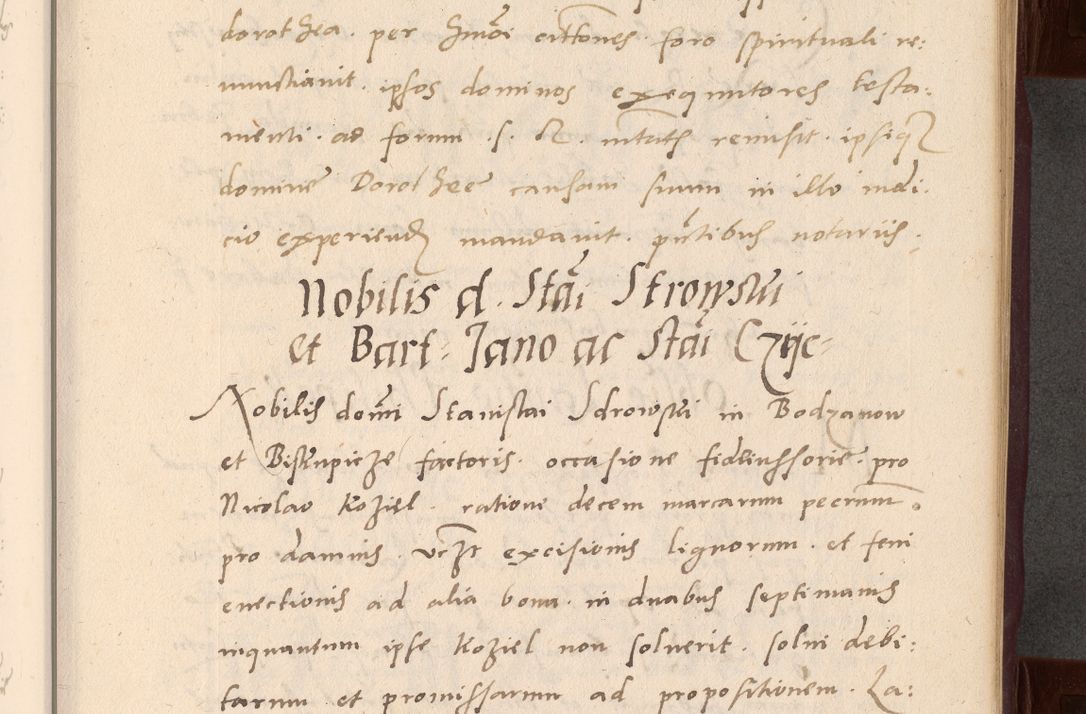 dorothea. per hmōi cittōnes foro spirituali re:
nunctiavit. ipsos dominos exequutores testa:
menti. ad forum .S. R. mtatis remisit. ipsiq
domine Dorothee causam suam in illo iudi:
cio experiend mandavit. pñtibus notariis.
Nobilis d. Stāi Strowski
et Bart: Jano ac Stāi Czije:
Nobilis domi Stanislai Sdrowski in Bodzanow
et Biskupicze factoris. occasione fideiussorie. pro
Nicolao Koziel. ratione decem marcarum pecrum
pro damnis. vczt excisionis lignorum. et feni
evectionis ad alia bona. in duabus septimanis
inquantum ipse Koziel non solverit. solui debi:
tarum et promissarum ad propositionem. La: